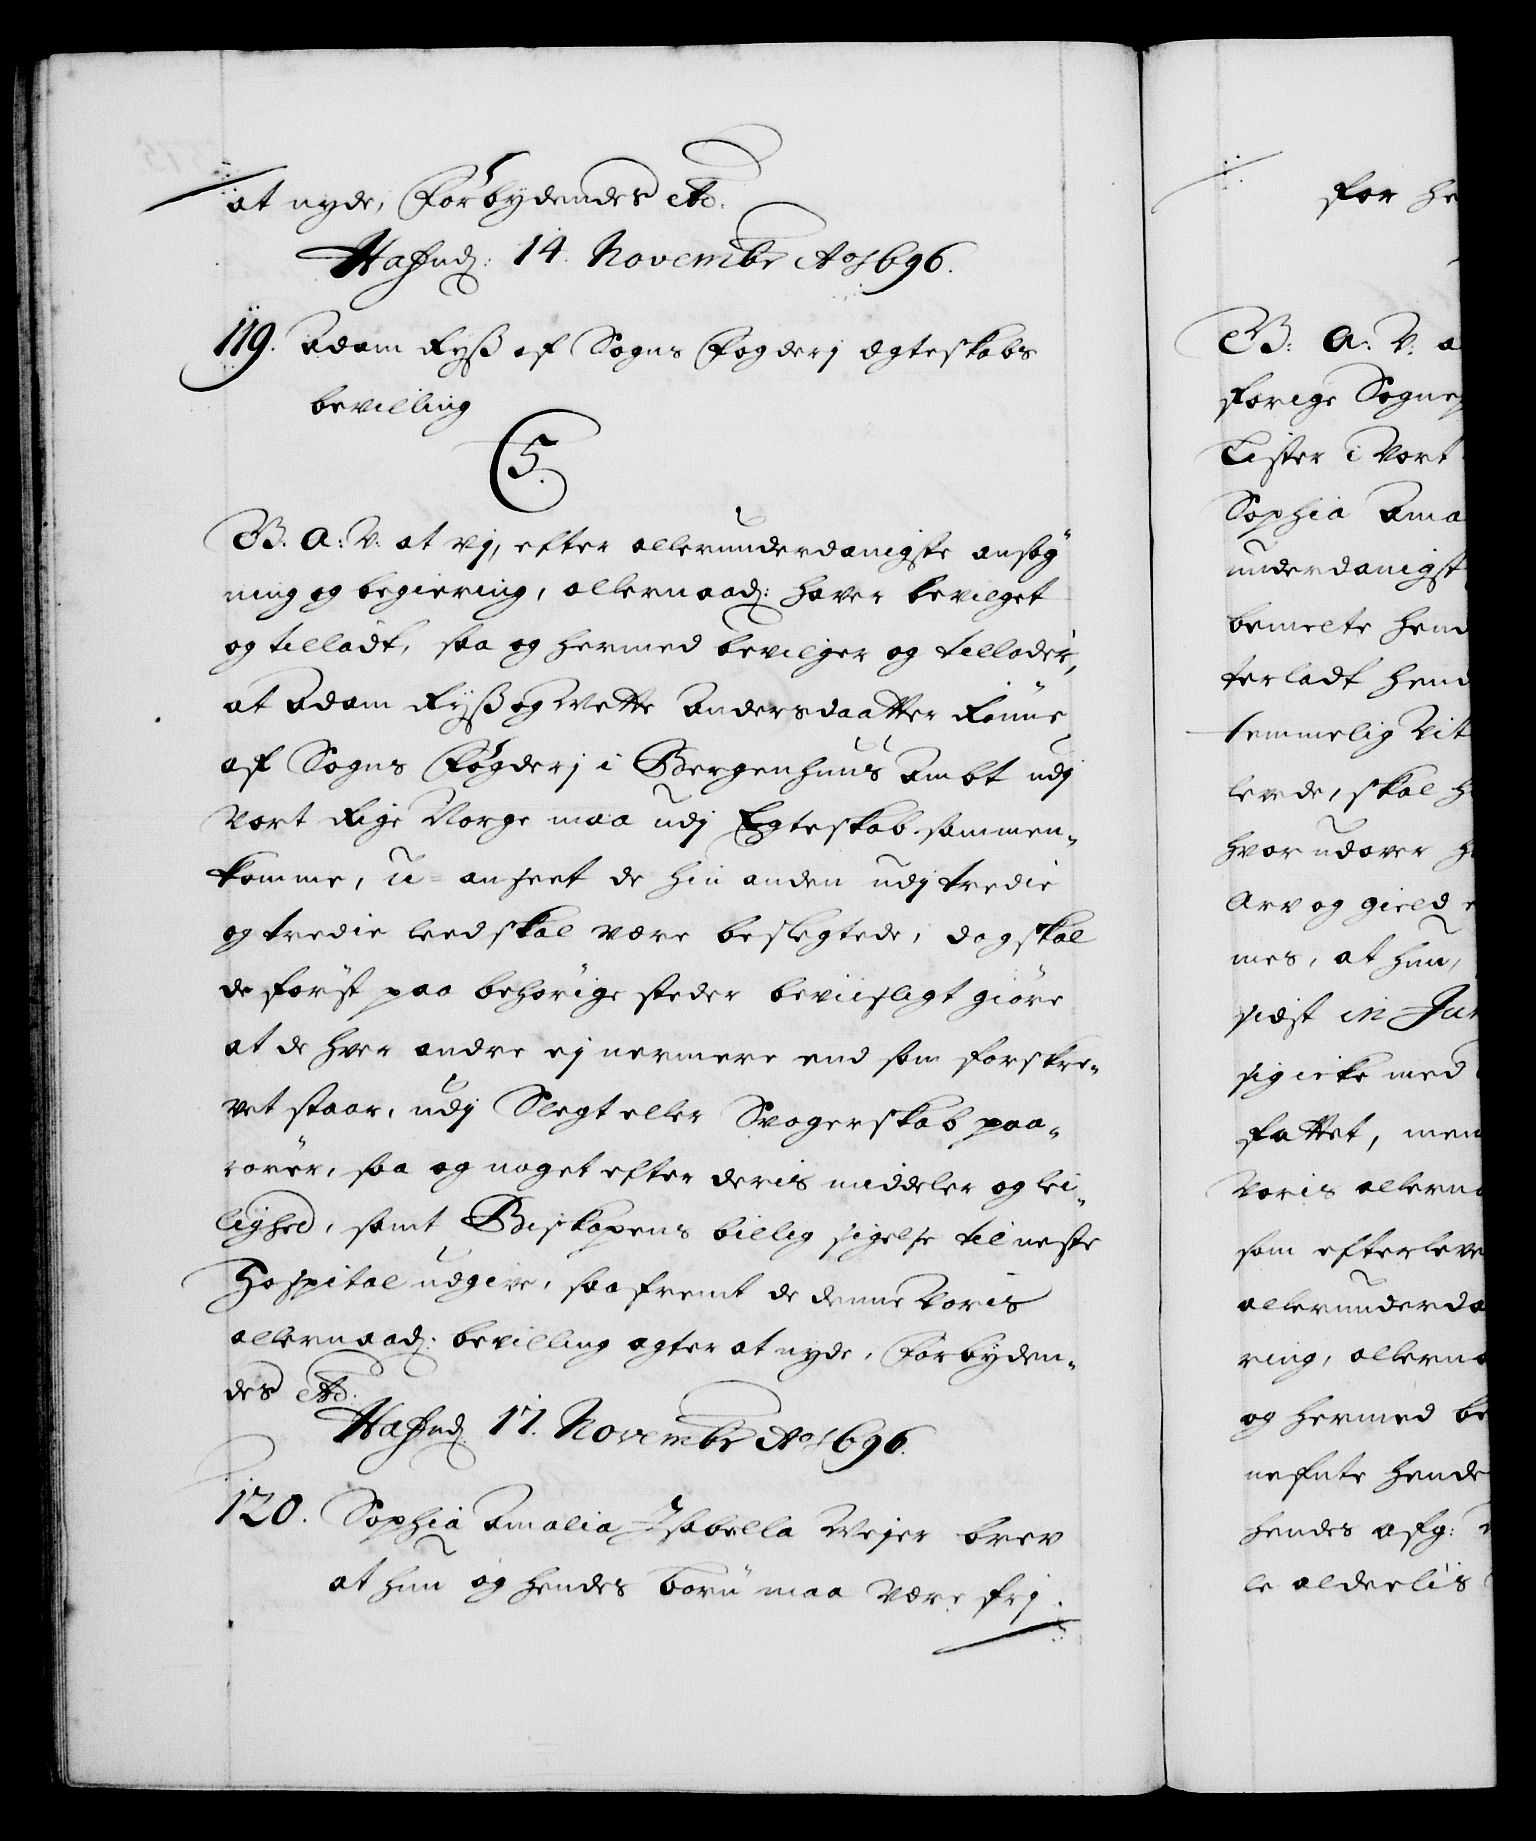 at nyde, Forbydendes etc.
Hafnd: 14. Novembr Ao 1696.
119. Adam Ryß af Sogns Fogderj Egteskabs
bevilling
5.
G. A: V. at vj, efter allerunderdanigste ansøg
ning og begiering, allernaad: hafver bevilget
og tilladt, saa og hermed bevilger og tillader,
at Adam Ryß og Mette Andersdaatter Rønne
af Sogns Fogderj i Bergenhuus Ambt udj
Vort Rige Norge maa udj Egteskab sammen-
komme, u-anseet de hin anden udj tredie
og tredie leed skal være beslegtede, dog skal
de først paa behørige steder beviisligt giøre
at de hver andre ej nermere end som forskre-
vet staar, udj Slegt eller Svogerskab paa-
rører, saa og noget efter deris middeler og lei-
lighed, samt Biskopens billig sigelse til neste
Hospital udgive, saafremt de denne Voris
allernaad: bevilling agter at nyde, Forbyden-
des etc:
Hafnd. 17. Novembr Ao 1696.
120. Sophia Amalia Isabella Mejer brev
at hun og hendes børn maa være frj
for he
G: A: V. a
forige Sogne
Lister i Vort
Sophia Ama
underdanigst
bemelte hend
terladt hend
temmelig Vit
levede, skal h
hvorudover h
Arv og gield
mes, at hun,
sidst in Ju
sig icke med
fattet, men
Voris allerna
som efterleve
allerunderda
ring, allerna
og hermed be
nefnte hende
hendes afg:
le alderlis